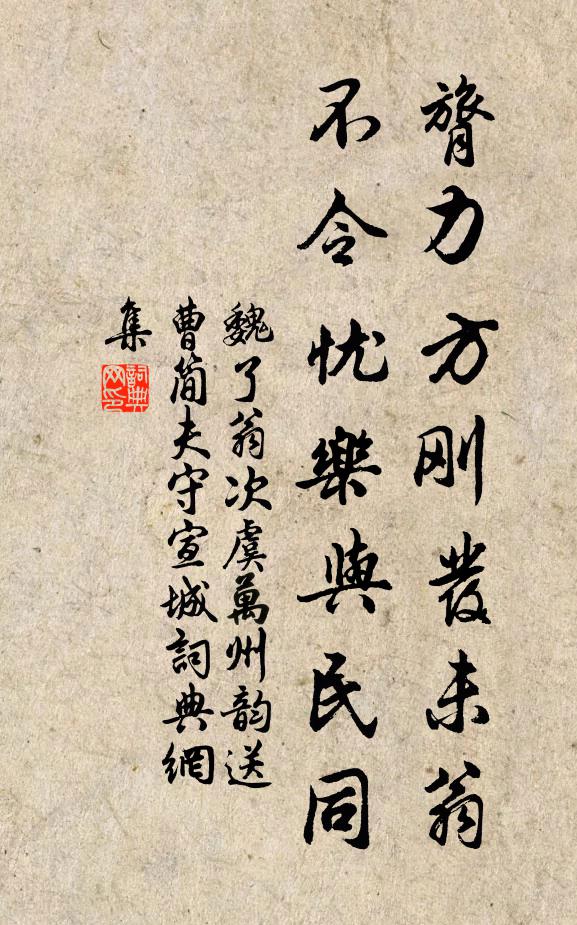 膂力方刚發未翁
不令忧樂與民同
魏了翁次虞萬州韵送
曹简夫守宣城詞典網
集
詞典
网印